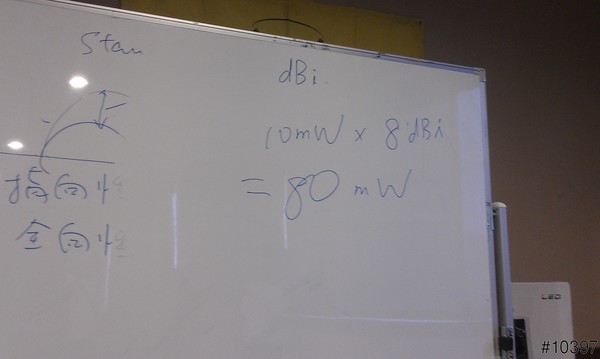 Stan
dBi
10mW x 8dBi
= 80 mW
全(向)性
LEO
#10397